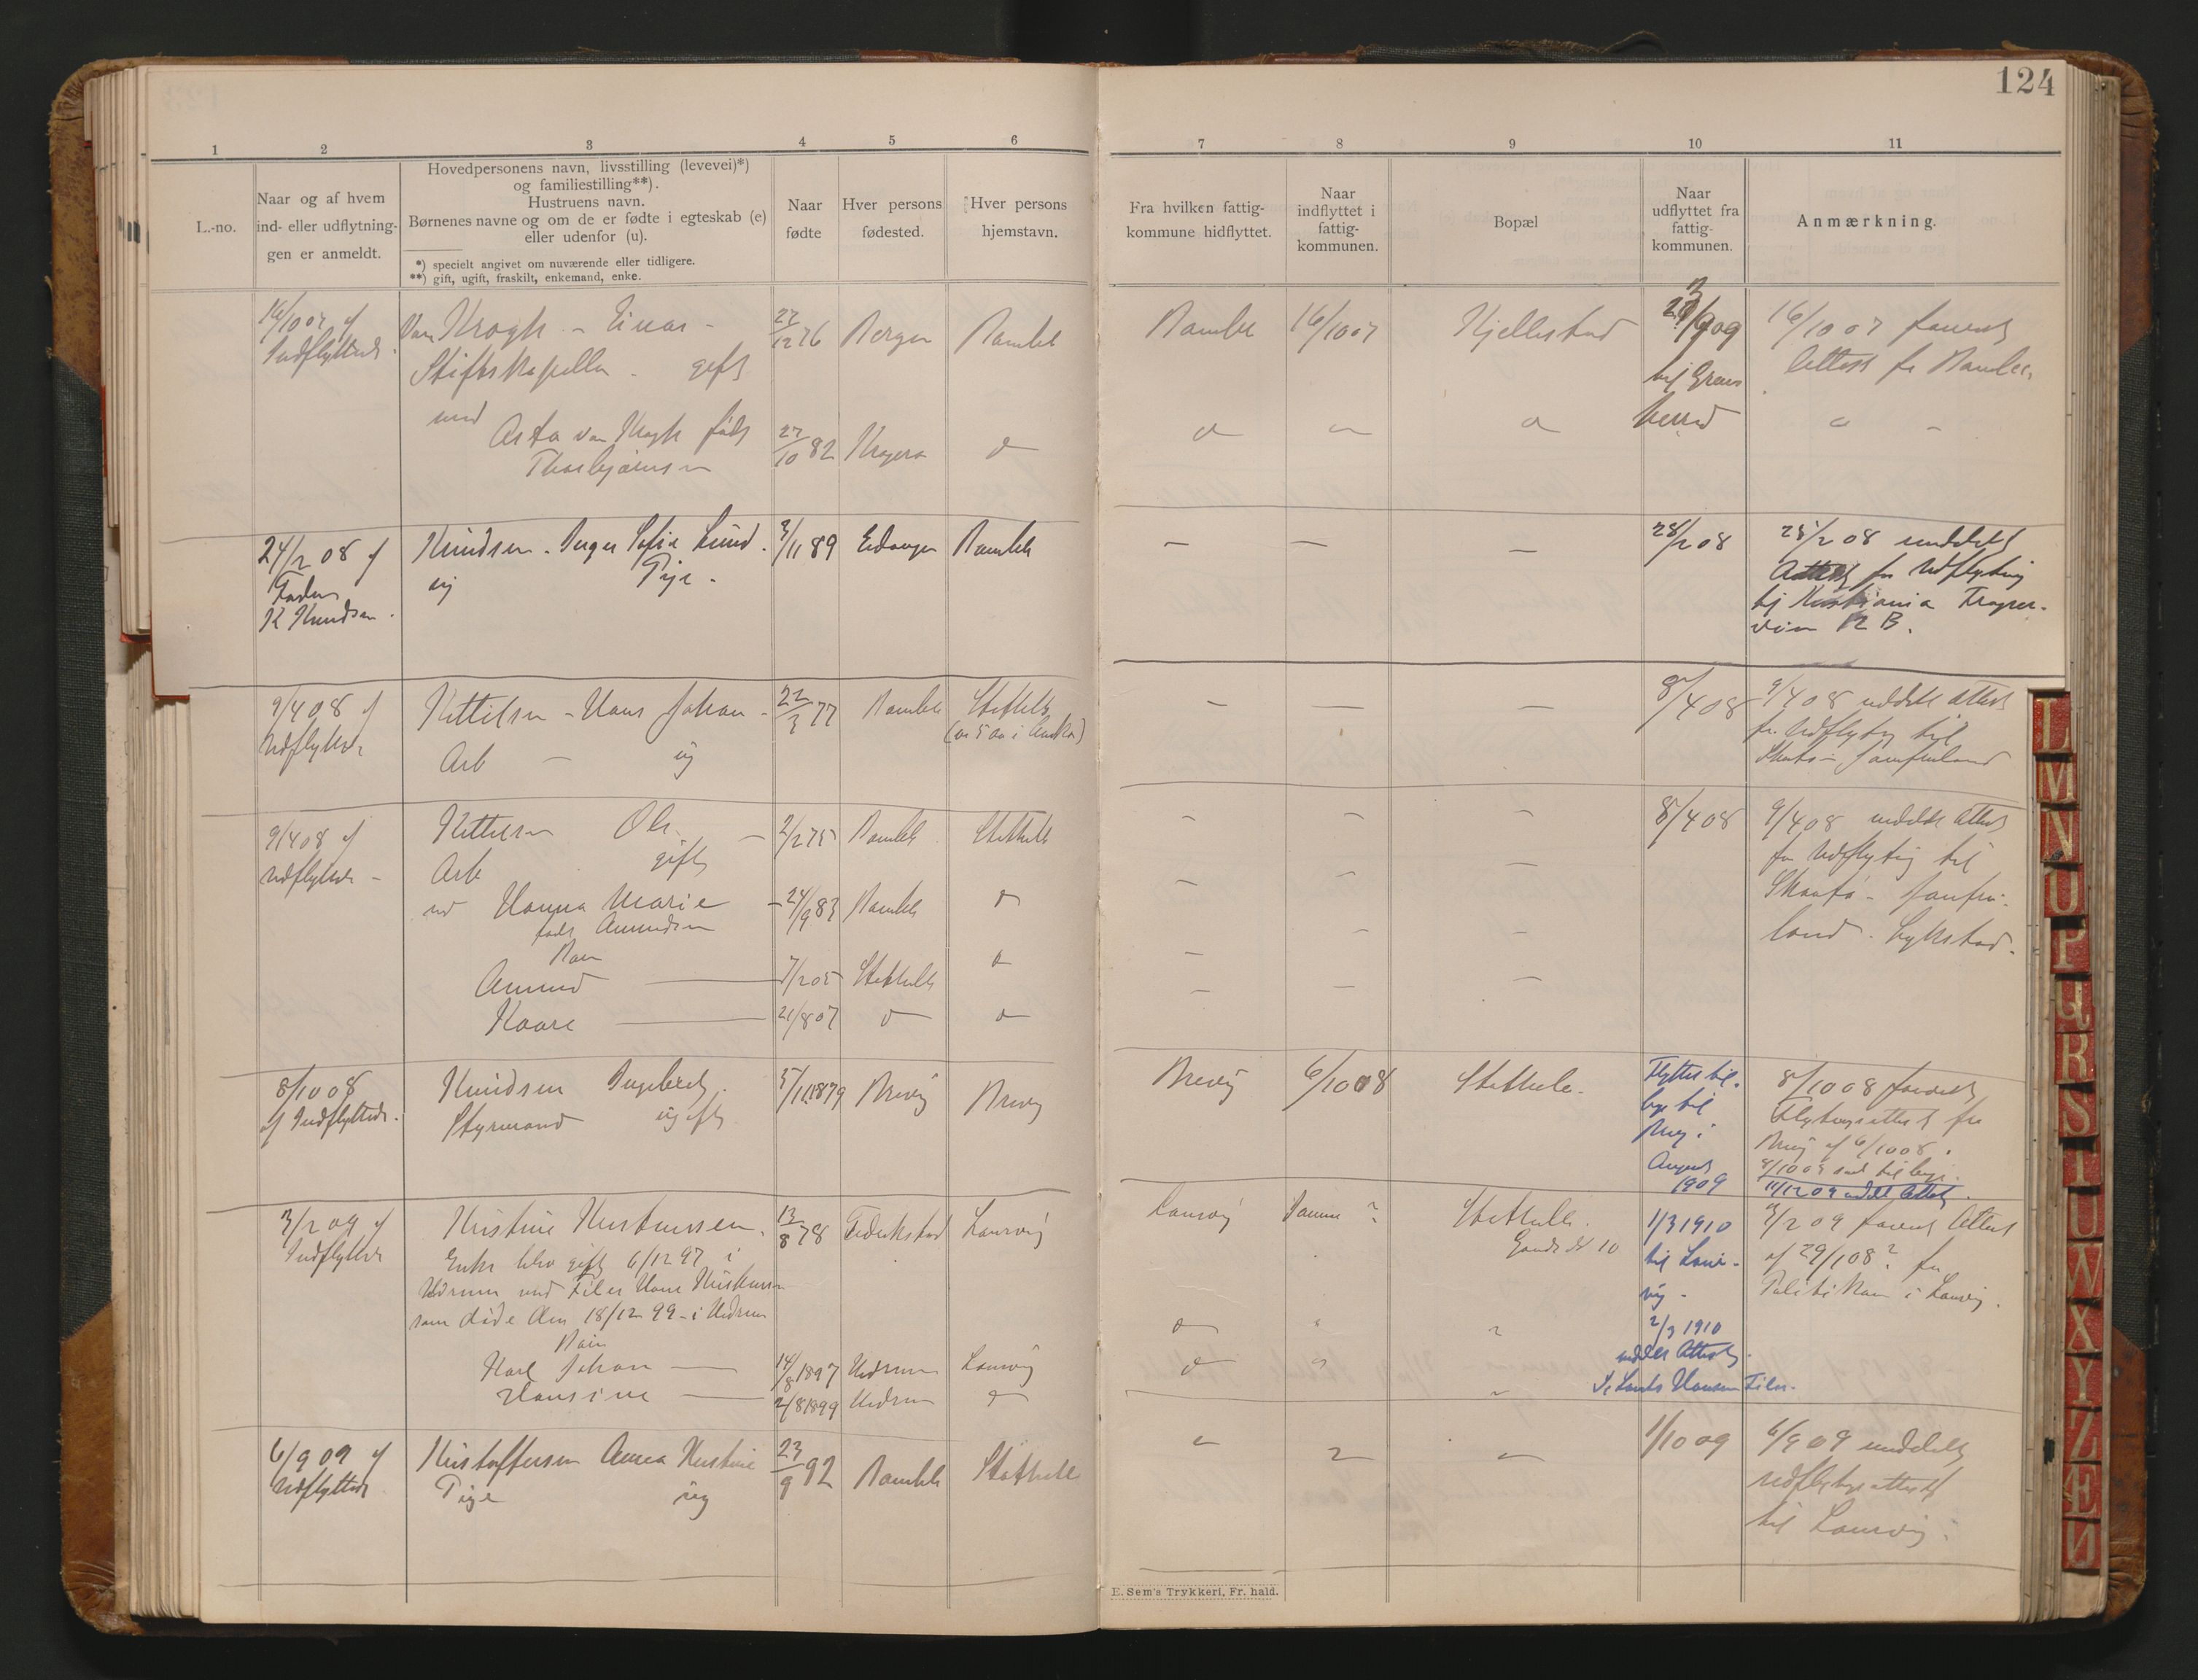 124
1 2 3 4 5 6 7 8 9 10 11
L.-no.
Naar og af hvem
ind- eller udflytnin-
gen er anmeldt.
Hovedpersonens navn, livsstilling (levevei)*)
og familiestilling**).
Hustruens navn.
Børnenes navne og om de er fødte i egteskab (e)
eller udenfor (u).
*) specielt angivet om nuværende eller tidligere.
**) gift, ugift, fraskilt, enkemand, enke.
Naar
fødte
Hver persons
fødested.
Hver persons
hjemstavn.
Fra hvilken fattig-
kommune hidflyttet.
Naar
indflyttet i
fattig-
kommunen.
Bopæl
Naar
udflyttet fra
fattig-
kommunen.
Anmærkning.
16/10 07 af
Indflyttede.
Von Krogh - Einar -
Stiftskapellan - gift
med
Asta von Krogh født
Thorbjørnsen
27/12 76 Bergen Bamble
27/10 82 Kragerø
Bamble 16/10 07 Kjellestad
09
til
herred
16/10 07 forevist
Attest fra Bamble
24/2 08 af
Faderen
K Knudsen.
Knudsen - Inger Sofie Lund.
ug Pige.
3/11 89 Eidanger Bamble
28/2 08
25/2 08 meddelt
Attest for Udflytning
til Kristiania Frogner-
veien 12 B.
9/4 08 af
Udflyttede
Kittilsen - Hans Johan -
Arb - ug
22/3 77 Bamble Stathelle
8/4 08
9/4 08 meddelt Attest
for Udflytning til
Skaatø - Jomfruland
9/4 08 af
Udflyttede -
Kittilsen Ole. -
Arb gift
med Hanna Marie
født Amundsen
Børn
Amund
Kaare
2/2 75 Bamble Stathelle
24/9 83 Bamble
7/2 05 Stathelle
21/8 07
8/4 08
9/4 08 meddelt Attest
for Udflytning til
Skaatø - Jomfru-
land.
8/10 08
af Indflyttede.
Knudsen Ingebret.
Styrmand ugift
5/11 1879 Brevig Brevig
Brevig 6/10 08 Stathelle.
Flyttet til-
bage til
Brevig i
August
1909
8/10 08 forevist
Flytningsattest fra
Brevig af 6/10 08.
11/12 09 meddelt Attest.
3/2 09 af
Indflyttede
Kristine Kristensen.
Enke blev gift 6/12 97 i
Hedrum med Filer Hans Kristensen
som døde den 18/12 99 - i Hedrum
Børn
Karl Johan
Hansine
13/8 78 Frederikstad Laurvig
14/8 1897 Hedrum Laurvig
2/8 1899 Hedrum
Laurvig Samme ? Stathelle.
1/3 1910
til Laur-
vig -
2/3 1910
meddelt Attest.
Hansen Filer.
3/2 09 forevist Attest
af 29/1 08? fra
Politikam i Laurvig.
6/9 09 af
Udflyttede
Kristoffersen Anna Kristine
Pige ug
23/9 92 Bamble Stathelle
1/10 09
6/9 09 meddelt
udflytningsattest
til Laurvig.
E. Sem's Trykkeri, Fr.hald.
L
M
N
O
P
Q
R
S
T
U
W
X
Y
Z
Æ
Ø